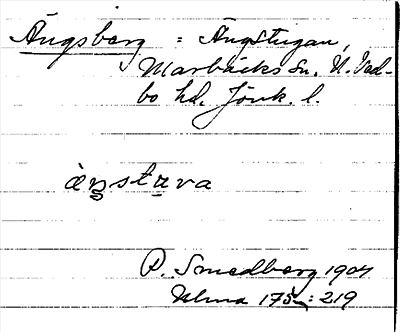 Ängsberg = Ängstugan,
Marbäcks sn, N. Ved-
bo hd. Jönk. l.
ängstuva
P. Smedberg 1904
Ulma 175 : 219